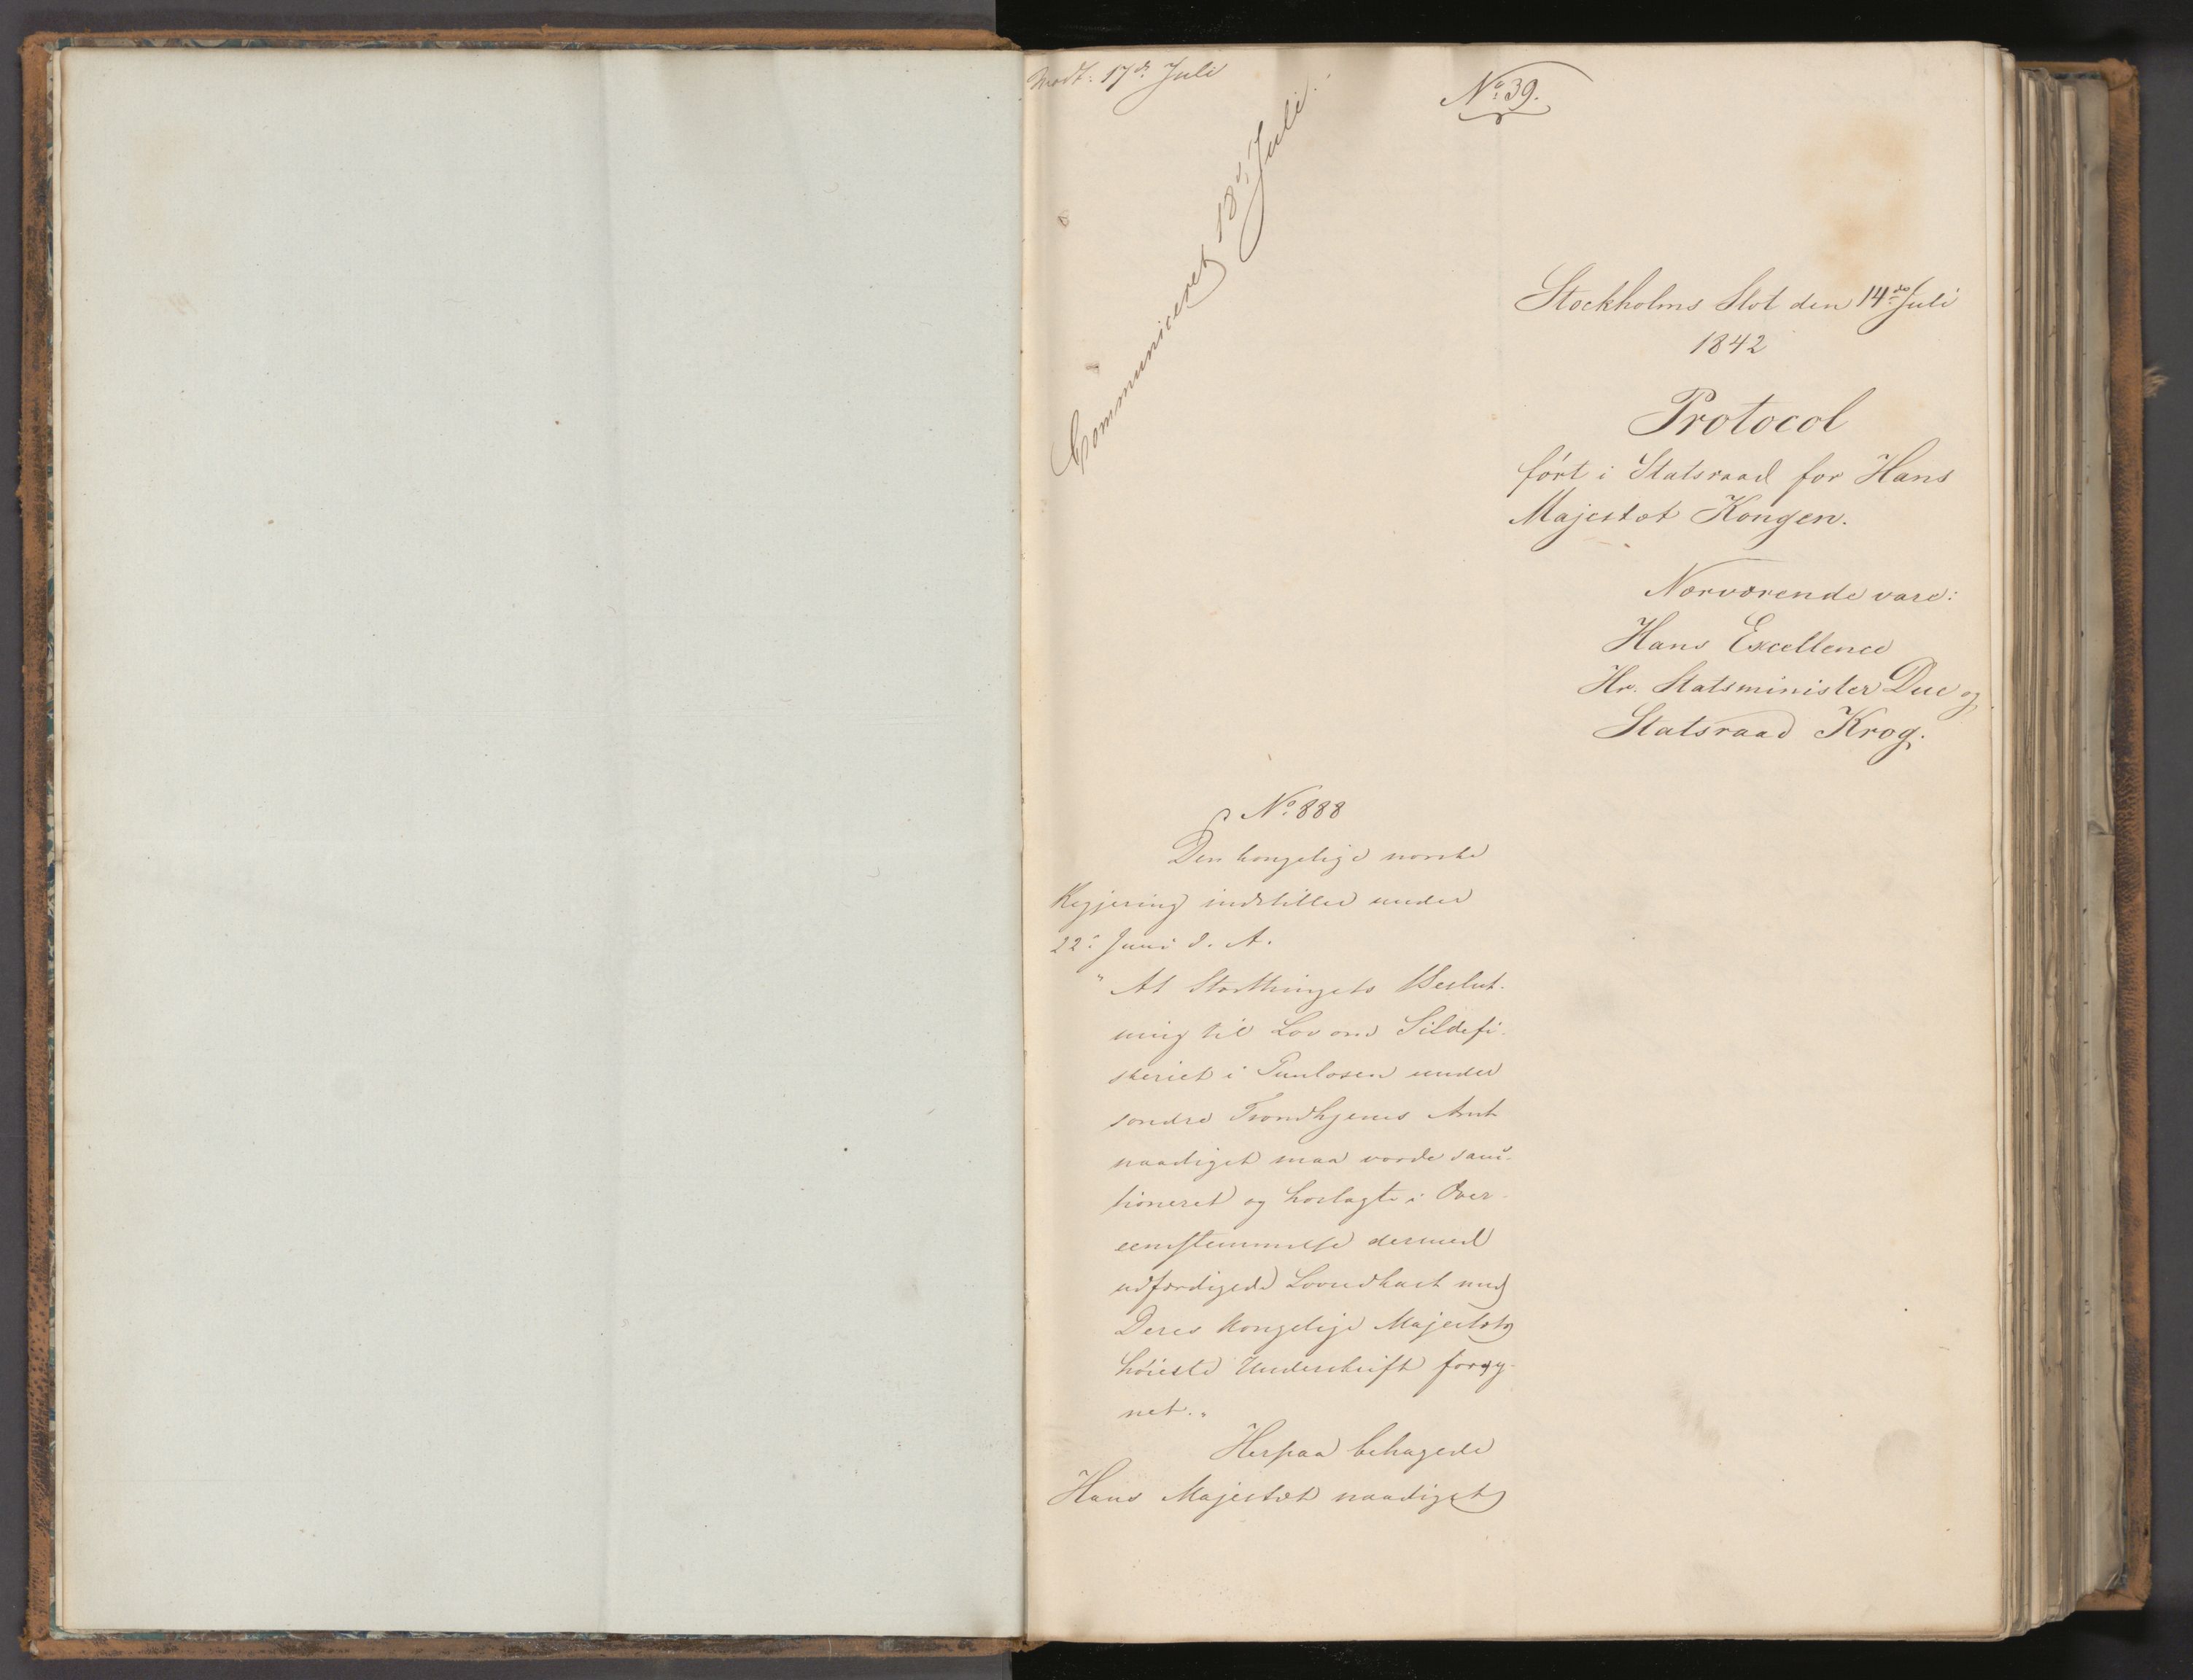 Modt: 17de Juli
No: 39.
Communiceret 18de Juli.
Stockholms Slot den 14de Juli
1842
Protocol
ført i Statsraad for Hans
Majestæt Kongen.
Nærværende vare:
Hans Excellence
Hr. Statsminister Due og
Statsraad Krog.
No: 888
Den kongelige norske
Regjering indstiller under
22: Juni d. A.
"At Storthingets Beslut-
ning til Lov om Sildefi-
skeriet i under
søndre Trondhjems Amt
naadigst maa vorde sanc-
tioneret og hoslagte i Over-
eensstemmelse dermed
udfærdigede Lovudkast med
Deres Kongelige Majestæts
høieste Underskrift forsyg-
net."
Herpaa behagede
Hans Majestæt naadigst